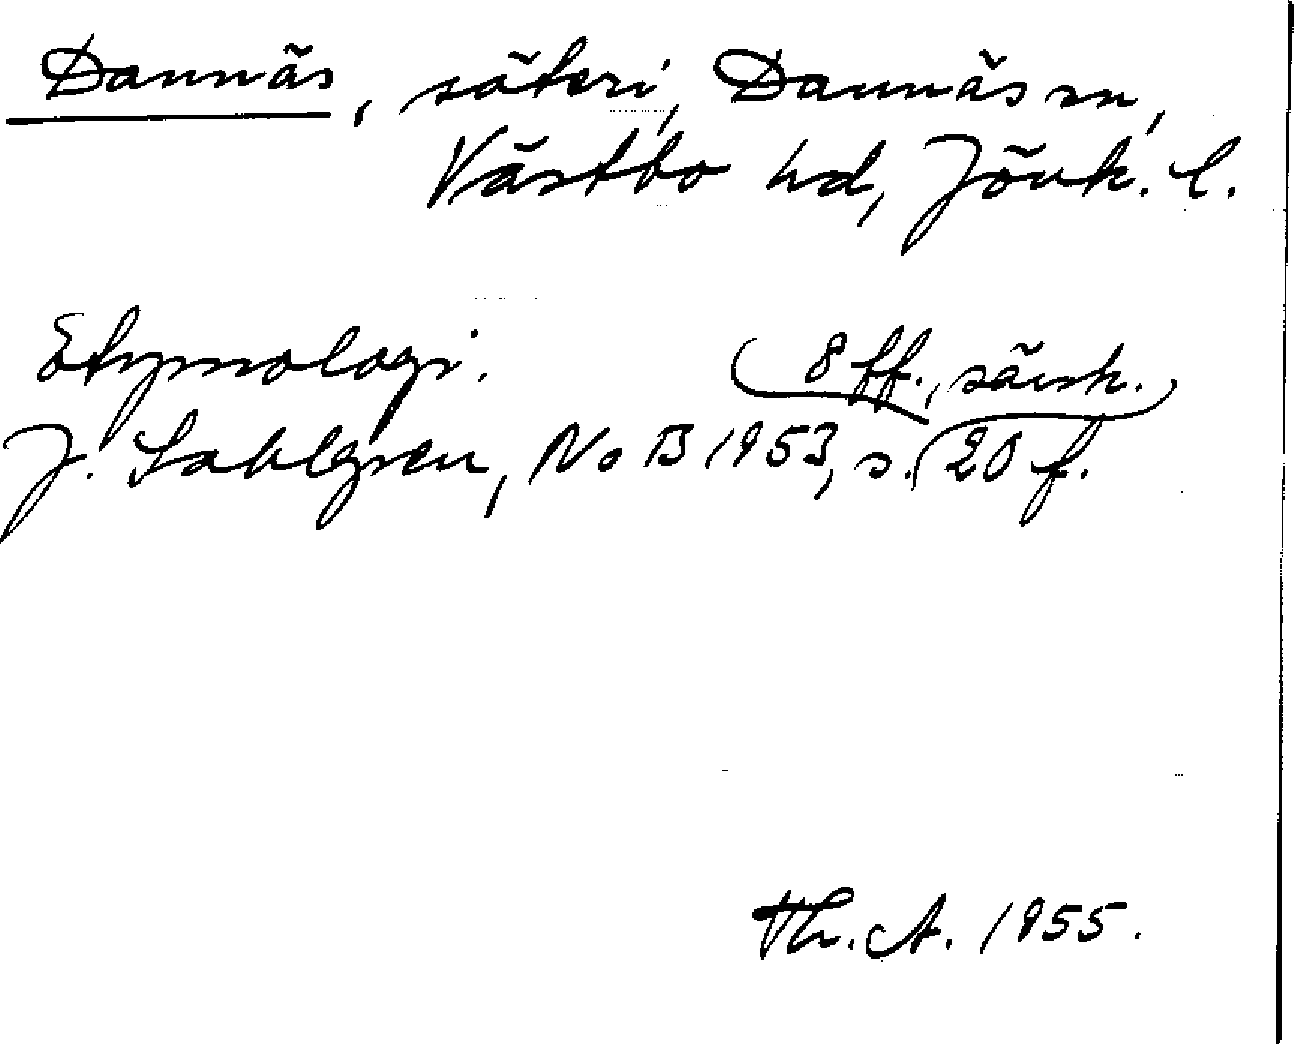 Dannäs, säteri, Dannäs sn,
Västbo hd, Jönk. l.
Etymologi.
8 ff., särsk.
J. Sahlgren, NoB 1953, s. 20 f.
Th. A. 1955.